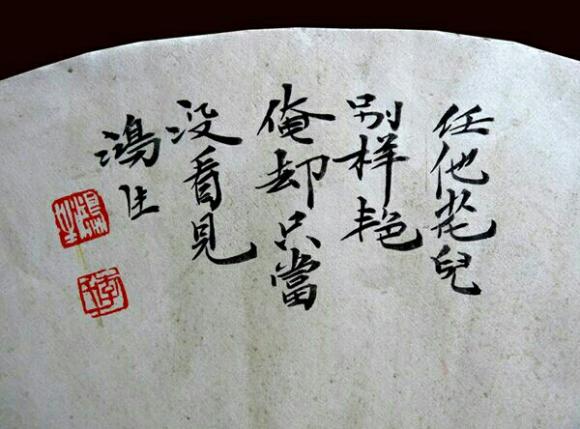 任他花兒
别样艳
俺却只當
没看見
鴻生